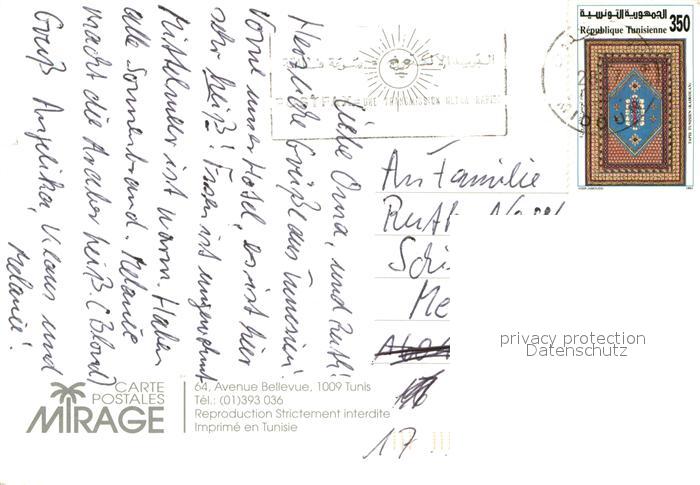 الجمهورية التونسية
République Tunisienne 350
TAPIS TUNISIEN (KAIROUAN)
Liebe Oma, und Ruth!
Herzliche Grüße aus Tunesien!
Vorne unser Hotel, es ist hier
sehr heiß! Essen ist ungewohnt.
Mittelmeer ist warm. Haben
alle Sonnenbrand. Melanie
macht die Araber heiß. (Blond)
Gruß Angelika, Klaus und
Melanie!
An Familie
Ruth
17
privacy protection
Datenschutz
CARTE
POSTALES
MIRAGE
64, Avenue Bellevue, 1009 Tunis
Tél.: (01)393 036
Reproduction Strictement interdite
Imprimé en Tunisie